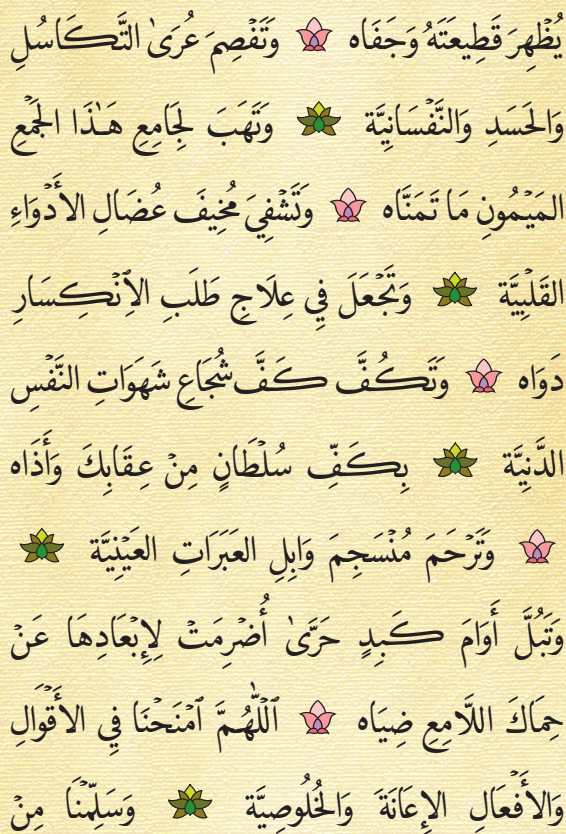 يُظْهِرَ قَطِيعَتَهُ وَجَفَاه وَتَفْصِمَ عُرَىٰ التَّكَاسُلِ
وَالحَسَدِ وَالنَّفْسَانِيَّة وَتَهَبَ لِجَامِعِ هَـٰذَا الجَمْعِ
المَيْمُونِ مَا تَمَنَّاه وَتَشْفِيَ مُخِيفَ عُضَالِ الأَدْوَاءِ
القَلْبِيَّة وَتَجْعَلَ فِي عِلَاجِ طَلَبِ الِانْكِسَارِ
دَوَاه وَتَكُفَّ كَفَّ شُجَاعِ شَهَوَاتِ النَّفْسِ
الدَّنِيَّة بِكَفِّ سُلْطَانٍ مِنْ عِقَابِكَ وَأَذَاه
وَتَرْحَمَ مُنْسَجِمَ وَابِلِ العَبَرَاتِ العَيْنِيَّة
وَتَبُلَّ أُوَامَ كَبِدٍ حَرَّىٰ أُضْرِمَتْ لِإِبْعَادِهَا عَنْ
حِمَاكَ اللَّامِعِ ضِيَاه ٱللّٰهُمَّ ٱمْنَحْنَا فِي الأَقْوَالِ
وَالأَفْعَالِ الإِعَانَةَ وَالخُلُوصِيَّة وَسَلِّمْنَا مِنْ